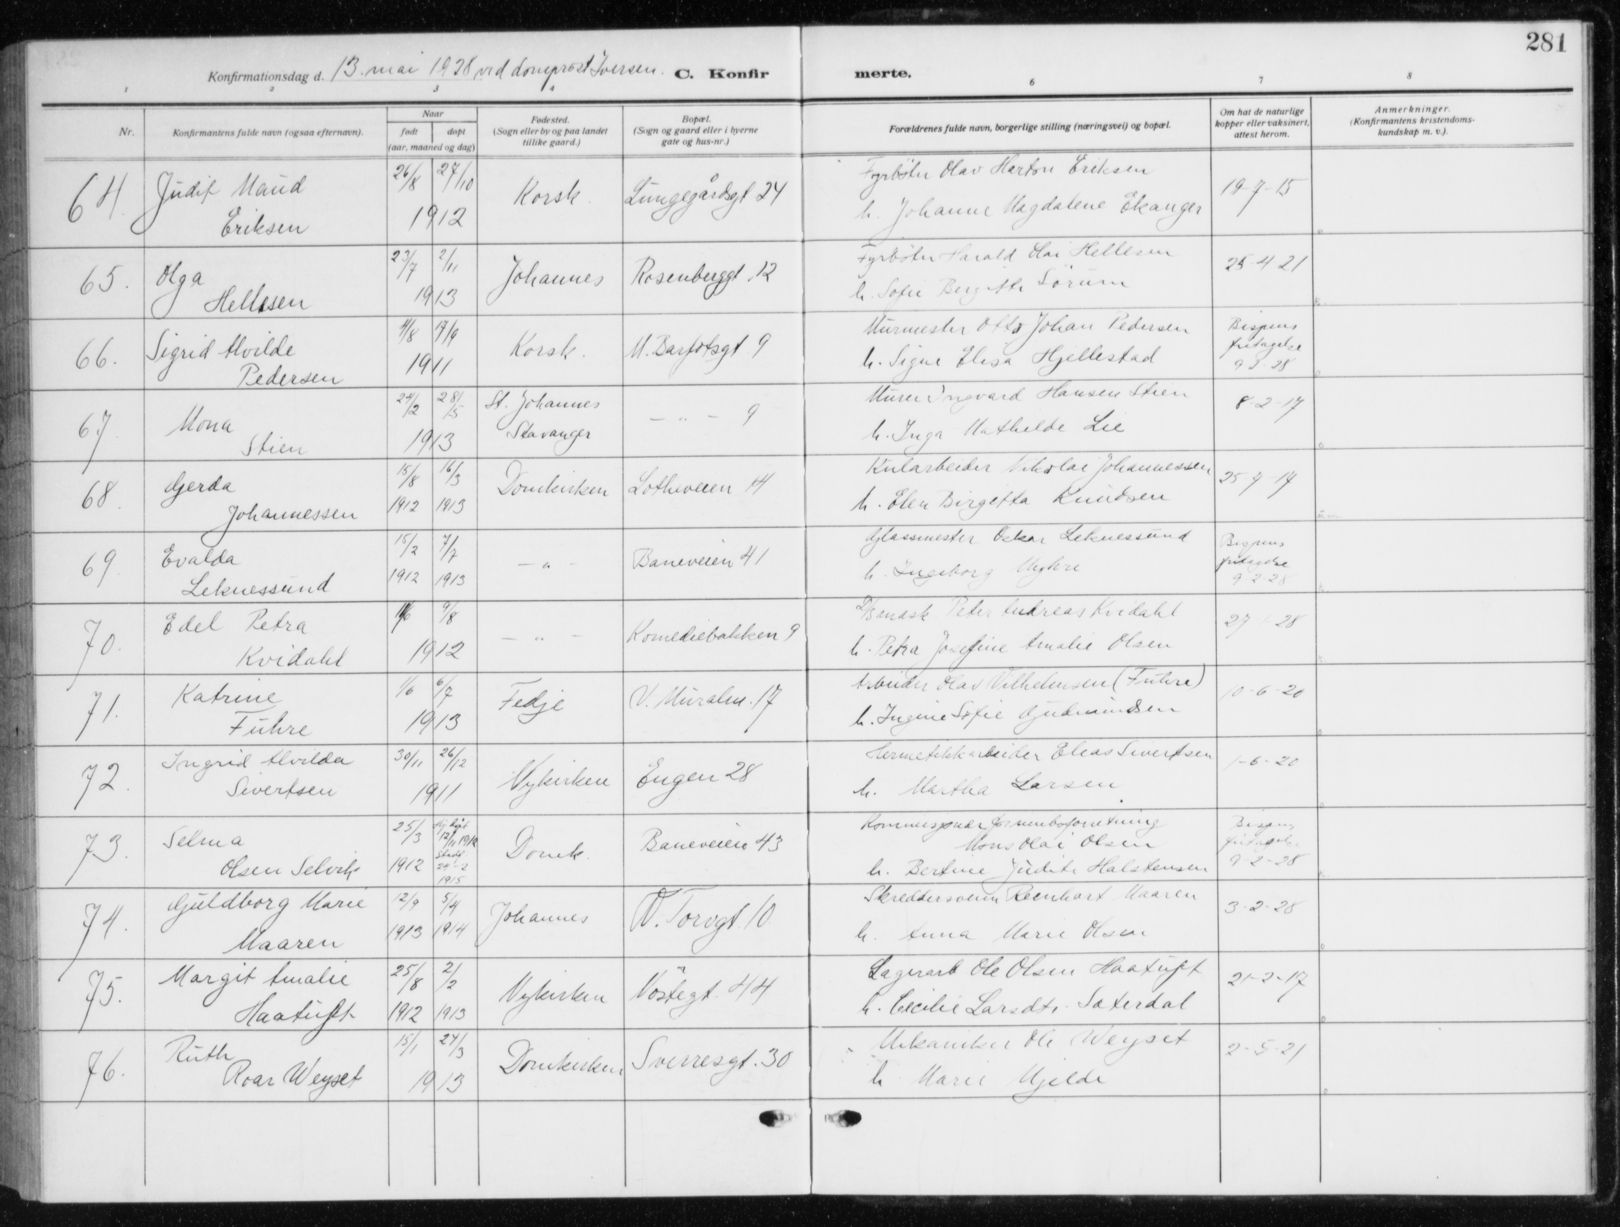 281
Konfirmationsdag d. 13. mai 1928 ved domprost Iversen. C. Konfir merte.
1 2 3 4 6 7 8
Nr.
Konfirmantens fulde navn (ogsaa efternavn).
Naar
født døpt
(aar, maaned og dag)
Fødested.
(Sogn eller by og paa landet
tillike gaard.)
Bopæl.
(Sogn og gaard eller i byerne
gate og hus-nr.)
Forældrenes fulde navn, borgerlige stilling (næringsvei) og bopæl.
Om hat de naturlige
kopper eller vaksinert,
attest herom.
Anmerkninger.
(Konfirmantens kristendoms-
kundskap m. v.).
64. Judit Maud
Eriksen
26/8 27/10
1912
Korsk.
Lungegårdsgt 24
Fyrbøter Olav Harton Eriksen
h. Johanne Magdalene Ekanger
19-7-15
65. Olga
Hellesen
23/7 2/11
1913
Johannes
Rosenberggt. 12
Fyrbøter Harald Olai Hellesen
h. Sofie Bergitte Sørum
25-4 21
66. Sigrid Alvilde
Pedersen
11/8 17/9
1911
Korsk.
M. Barfotsgt 9
Murmester Otto Johan Pedersen
h. Signe Elisa Hjellestad
Bispens
fritagelse
9-2-28
67. Mona
Stien
24/2 28/5
1913
St. Johannes
Stavanger
— " — 9
Murer Ingvard Hansen Stien
h. Inga Mathilde Lie
8-2-17
68. Gjerda
Johannessen
15/8 16/3
1912 1913
Domkirken
Lotheveien 14
Kularbeider Nikolai Johannessen
h. Elen Birgetta Knudsen
25-9-17
69. Evalda
Leknessund
15/2 7/7
1912 1913
— " —
Baneveien 41
Glassmester Oskar Leknessund
h. Ingeborg Myhre
Bispens
fritagelse
9-2-28
70. Edel Petra
Kvidahl
9/8
1912
— " —
Komediebakken 9
Peter Andreas Kvidahl
h. Petra Josefine Amalie Olsen
27 1-28
71. Katrine
Fuhre
1/6 6/7
1913
Fedje
V. Muralm. 17
Arbeider Olav Vilhelmsen (Fuhre)
h. Ingine Sofie Gudmundsen
10-6-20
72. Ingrid Alvilda
Sivertsen
30/11 26/12
1911
Nykirken
Engen 28
Hermetikkarbeider Elias Sivertsen
h. Martha Larsen
1-6-20
73. Selma
Olsen Selvik
25/3
1912
1912
1915
Domk.
Baneveien 43
Mons Olai Olsen
h. Bertine Judite Halstensen
Bispens
fritagelse
9-2-28
74. Gjuldborg Marie
Maaren
12/9 5/4
1913 1914
Johannes
V. Torvgt. 10
Skreddersvenn Reinhart Maaren
h. Anna Marie Olsen
3-2-28
75. Margit Amalie
Haatuft
25/8 2/2
1912 1913
Nykirken
Nøstegt. 44
Lagerarb Ole Olsen Haatuft
h. Cecilie Larsdtr. Sæterdal
21-2-17
76. Ruth
Roar Weyset
15/1 24/3
1913
Domkirken
Sverresgt. 30
Mekaniker Ole Weyset
h. Marie Mjelde
2-5-21